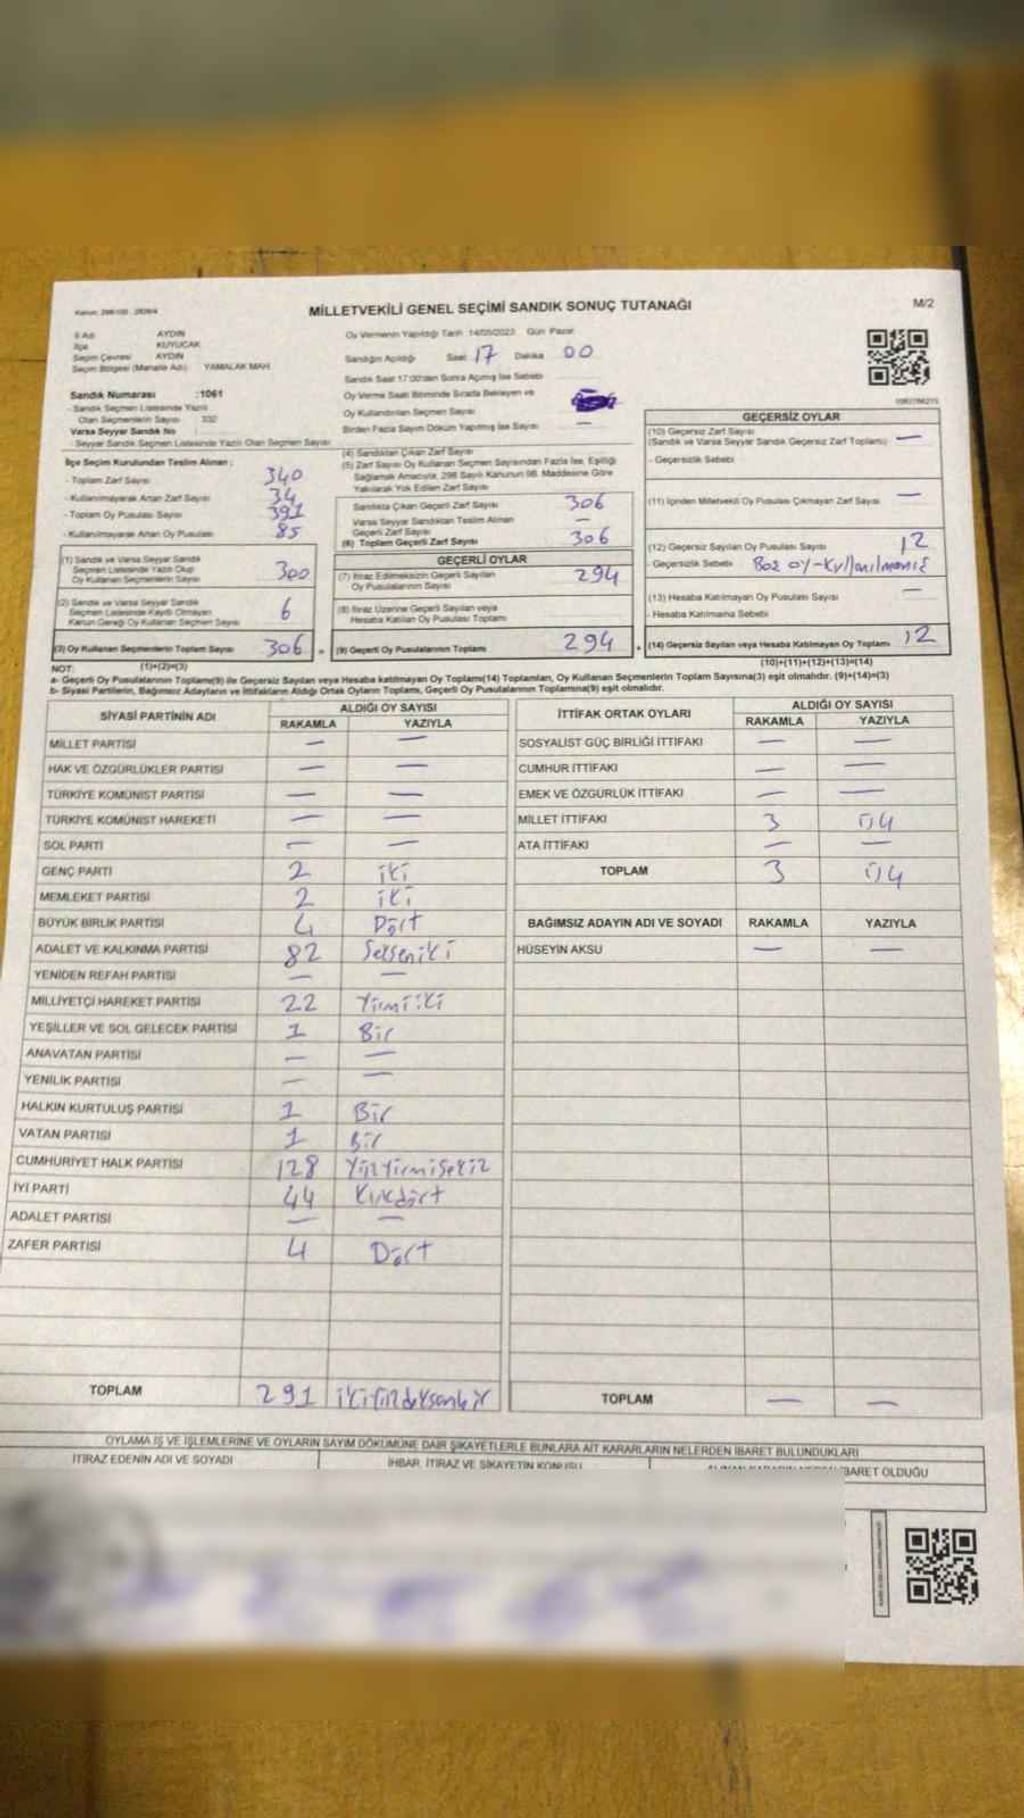 MİLLETVEKİLİ GENEL SEÇİMİ SANDIK SONUÇ TUTANAĞI
M/2
İl Adı AYDIN
İlçe KUYUCAK
Seçim Çevresi AYDIN
Seçim Bölgesi (Mahalle Adı) YAMALAK MAH.
Oy Vermenin Yapıldığı Tarih 14/05/2023 Gün Pazar
Sandığın Açıldığı Saat 17 Dakika 00
Sandık Saat 17:00'den Sonra Açılmış İse Sebebi
Sandık Numarası :1061
- Sandık Seçmen Listesinde Yazılı
Olan Seçmenlerin Sayısı 332
Varsa Seyyar Sandık No
- Seyyar Sandık Seçmen Listesinde Yazılı Olan Seçmen Sayısı
Oy Verme Saati Bitiminde Sırada Bekleyen ve
Oy Kullandırılan Seçmen Sayısı
Birden Fazla Sayım Döküm Yapılmış İse Sayısı —
İlçe Seçim Kurulundan Teslim Alınan :
- Toplam Zarf Sayısı 340
- Kullanılmayarak Artan Zarf Sayısı 34
- Toplam Oy Pusulası Sayısı 391
- Kullanılmayarak Artan Oy Pusulası 85
(1) Sandık ve Varsa Seyyar Sandık
Seçmen Listesinde Yazılı Olup
Oy Kullanan Seçmenlerin Sayısı 300
(2) Sandık ve Varsa Seyyar Sandık
Seçmen Listesinde Kaydı Olmayan
Kanun Gereği Oy Kullanan Seçmen Sayısı 6
(3) Oy Kullanan Seçmenlerin Toplam Sayısı 306
(4) Sandıktan Çıkan Zarf Sayısı
(5) Zarf Sayısı Oy Kullanan Seçmen Sayısından Fazla İse, Eşitliği
Sağlamak Amacıyla, 298 Sayılı Kanunun 98. Maddesine Göre
Yakılarak Yok Edilen Zarf Sayısı
Sandıkta Çıkan Geçerli Zarf Sayısı 306
Varsa Seyyar Sandıktan Teslim Alınan
Geçerli Zarf Sayısı —
(6) Toplam Geçerli Zarf Sayısı 306
GEÇERLİ OYLAR
(7) İtiraz Edilmeksizin Geçerli Sayılan
Oy Pusulalarının Sayısı 294
(8) İtiraz Üzerine Geçerli Sayılan veya
Hesaba Katılan Oy Pusulası Toplamı
(9) Geçerli Oy Pusulalarının Toplamı 294
GEÇERSİZ OYLAR
(10) Geçersiz Zarf Sayısı
(Sandık ve Varsa Seyyar Sandık Geçersiz Zarf Toplamı) —
- Geçersizlik Sebebi
(11) İçinden Milletvekili Oy Pusulası Çıkmayan Zarf Sayısı —
(12) Geçersiz Sayılan Oy Pusulası Sayısı 12
- Geçersizlik Sebebi Boz oy-Kullanılmamış
(13) Hesaba Katılmayan Oy Pusulası Sayısı —
- Hesaba Katılmama Sebebi
(14) Geçersiz Sayılan veya Hesaba Katılmayan Oy Toplamı 12
NOT: (1)+(2)=(3) (10)+(11)+(12)+(13)=(14)
a- Geçerli Oy Pusulalarının Toplamı(9) ile Geçersiz Sayılan veya Hesaba katılmayan Oy Toplamı(14) Toplamları, Oy Kullanan Seçmenlerin Toplam Sayısına(3) eşit olmalıdır. (9)+(14)=(3)
b- Siyasi Partilerin, Bağımsız Adayların ve İttifakların Aldığı Ortak Oyların Toplamı, Geçerli Oy Pusulalarının Toplamına(9) eşit olmalıdır.
SİYASİ PARTİNİN ADI ALDIĞI OY SAYISI
RAKAMLA YAZIYLA
MİLLET PARTİSİ — —
HAK VE ÖZGÜRLÜKLER PARTİSİ — —
TÜRKİYE KOMÜNİST PARTİSİ — —
TÜRKİYE KOMÜNİST HAREKETİ — —
SOL PARTİ — —
GENÇ PARTİ 2 iki
MEMLEKET PARTİSİ 2 iki
BÜYÜK BİRLİK PARTİSİ 4 Dört
ADALET VE KALKINMA PARTİSİ 82 Sekseniki
YENİDEN REFAH PARTİSİ — —
MİLLİYETÇİ HAREKET PARTİSİ 22 Yirmiiki
YEŞİLLER VE SOL GELECEK PARTİSİ 1 Bir
ANAVATAN PARTİSİ — —
YENİLİK PARTİSİ — —
HALKIN KURTULUŞ PARTİSİ 1 Bir
VATAN PARTİSİ 1 Bir
CUMHURİYET HALK PARTİSİ 128 Yüzyirmisekiz
İYİ PARTİ 44 Kırkdört
ADALET PARTİSİ — —
ZAFER PARTİSİ 4 Dört
TOPLAM 291 ikiyüzdoksanbir
İTTİFAK ORTAK OYLARI ALDIĞI OY SAYISI
RAKAMLA YAZIYLA
SOSYALİST GÜÇ BİRLİĞİ İTTİFAKI — —
CUMHUR İTTİFAKI — —
EMEK VE ÖZGÜRLÜK İTTİFAKI — —
MİLLET İTTİFAKI 3 üç
ATA İTTİFAKI — —
TOPLAM 3 üç
BAĞIMSIZ ADAYIN ADI VE SOYADI RAKAMLA YAZIYLA
HÜSEYİN AKSU — —
TOPLAM — —
OYLAMA İŞ VE İŞLEMLERİNE VE OYLARIN SAYIM DÖKÜMÜNE DAİR ŞİKAYETLERLE BUNLARA AİT KARARLARIN NELERDEN İBARET BULUNDUKLARI
İTİRAZ EDENİN ADI VE SOYADI
İHBAR, İTİRAZ VE ŞİKAYETİN KONUSU
OLDUĞU